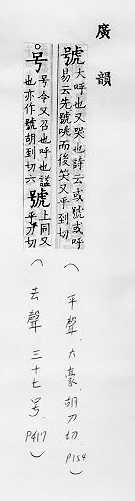 廣韻
號 大呼也又哭也詩云或號或呼
易云先號咷而後笑又乎到切
(平聲.六豪.胡刀切 P154)
号 号令又召也呼也謚
也亦作號胡到切六
號 上同又
乎刀切
(去聲 三十七号.P417)